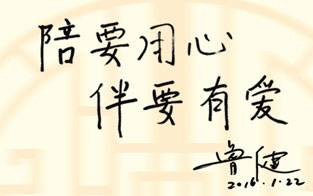 陪要用心
伴要有爱
鲁健
2016.1.22